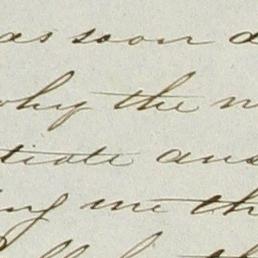 as soon a
why the n
tiate ans
ing me th